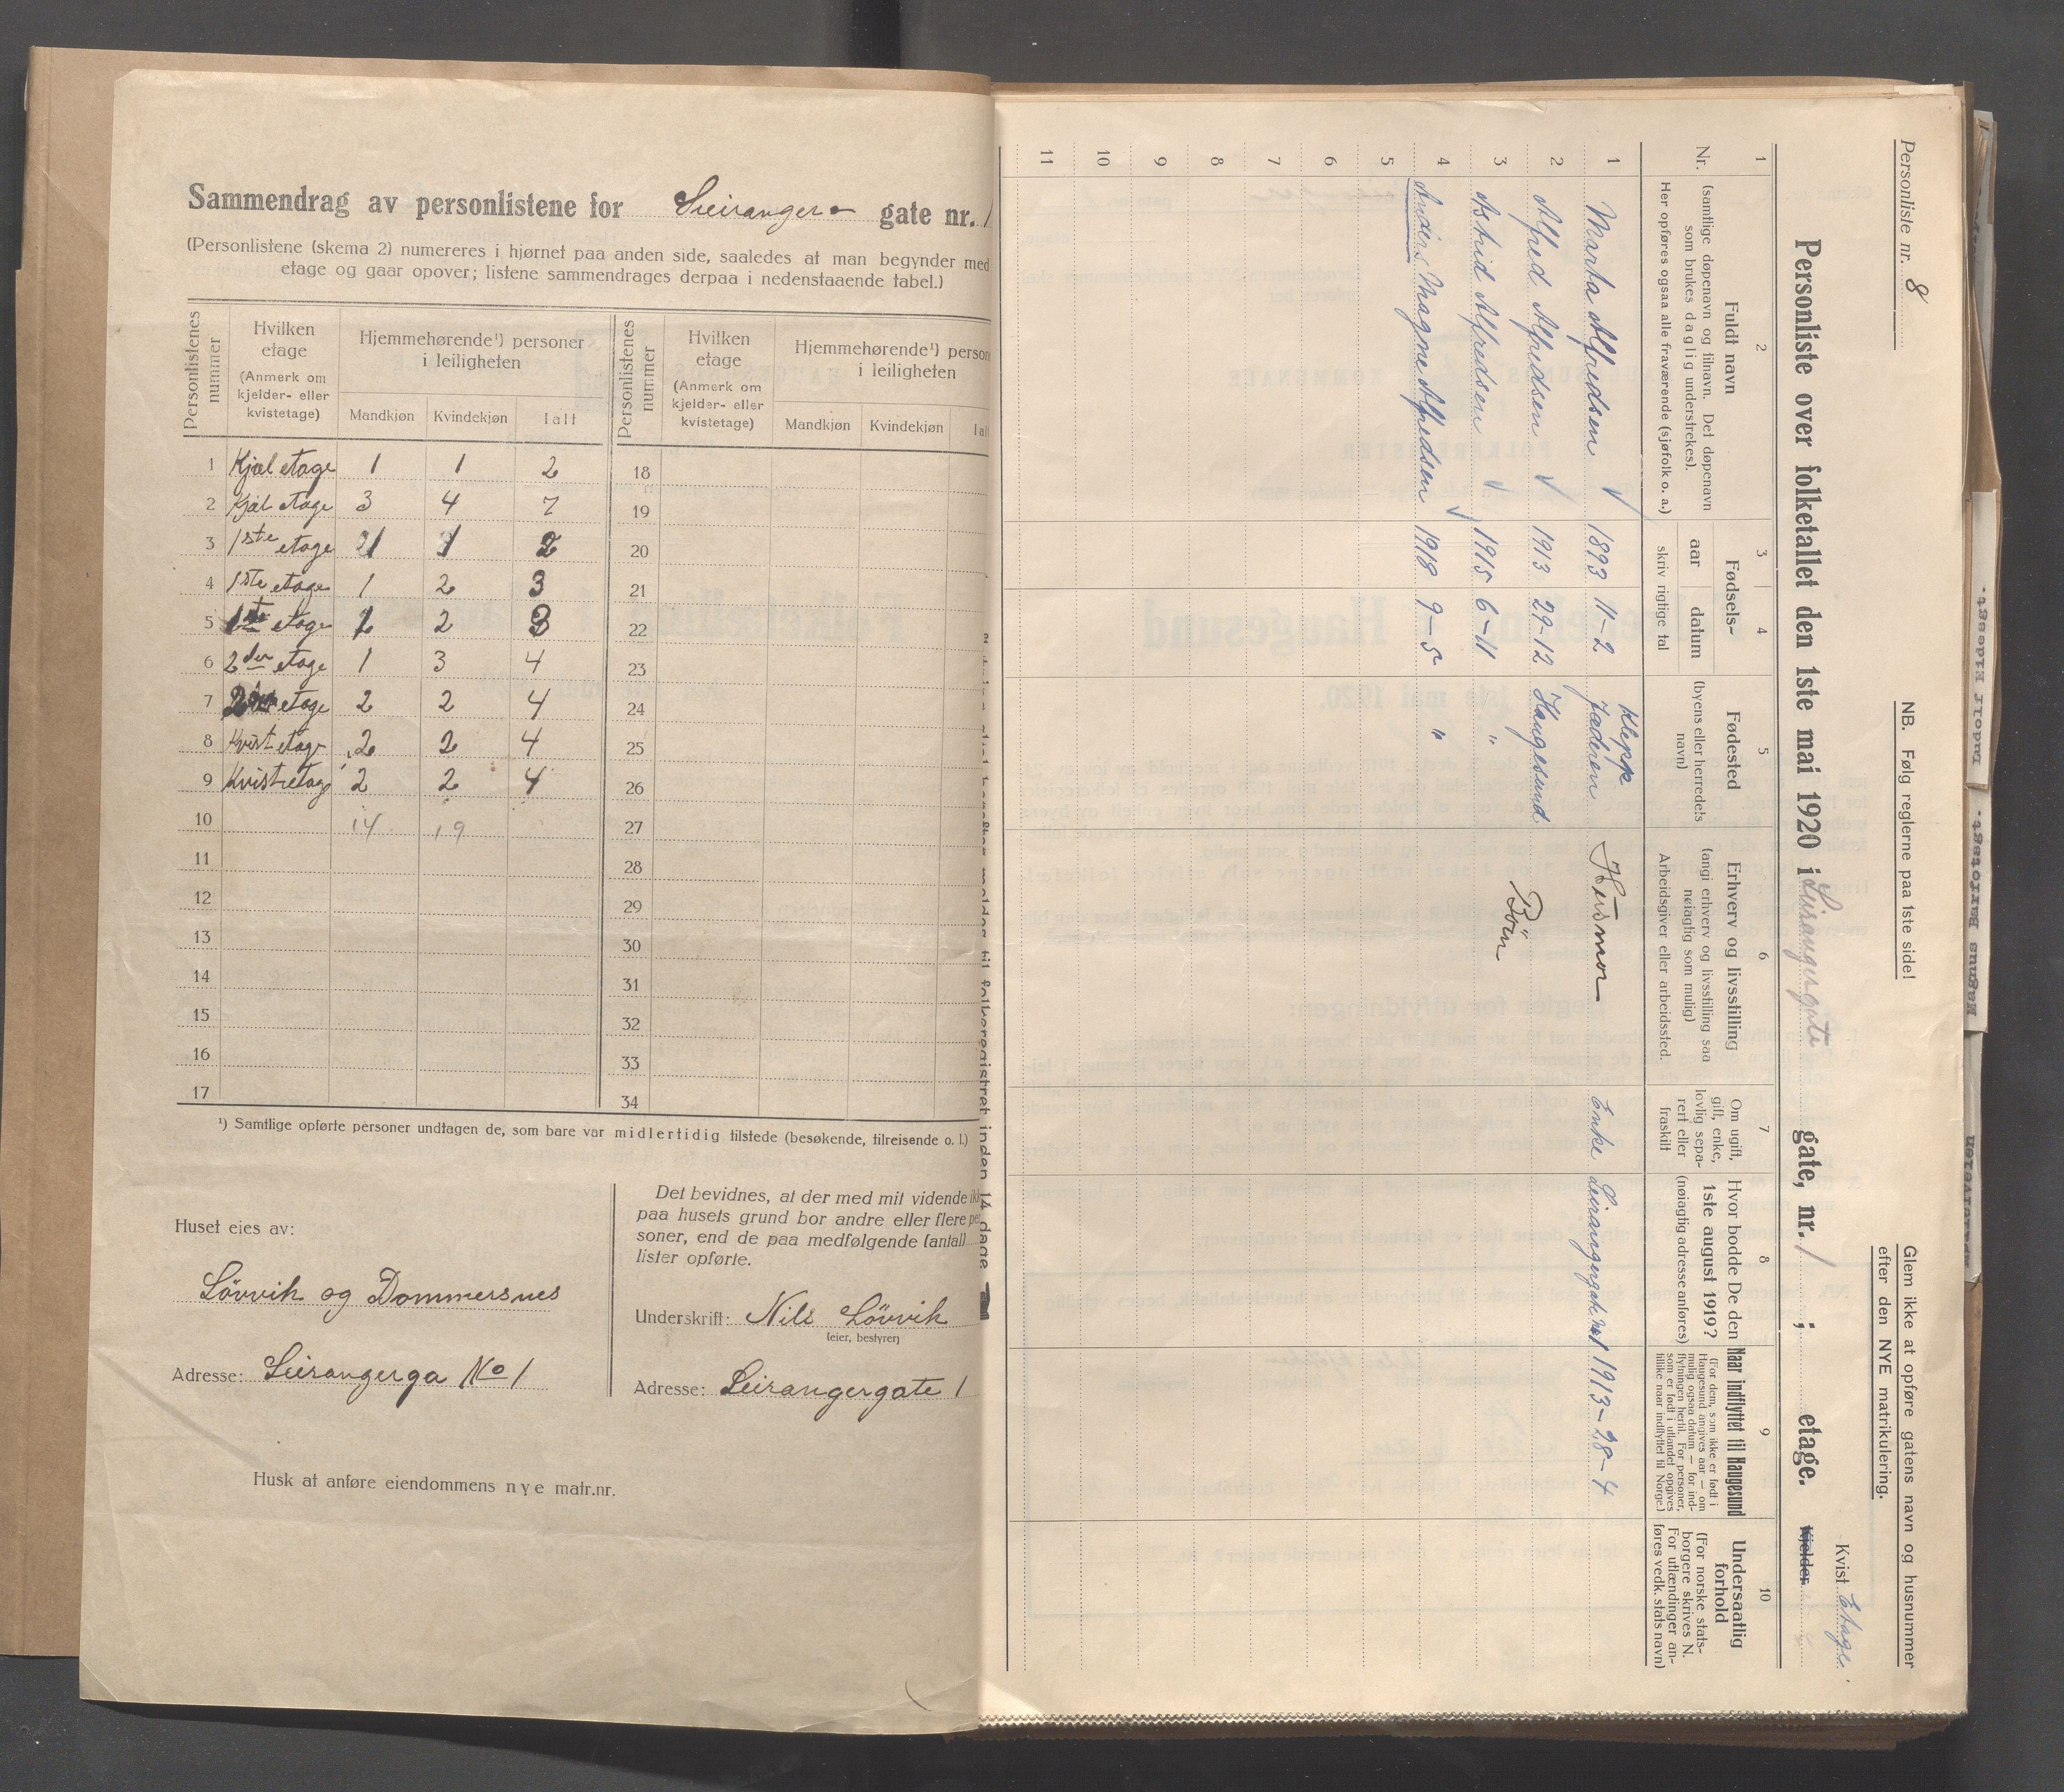 Sammendrag av personlistene for Leiranger- gate nr. 1
(Personlistene (skema 2) numereres i hjørnet paa anden side, saaledes at man begynder med
etage og gaar opover; listene sammendrages derpaa i nedenstaaende tabel.)
Personlistenes nummer
Hvilken etage (Anmerk om kjelder- eller kvistetage)
Hjemmehørende¹) personer i leiligheten
Mandkjøn Kvindekjøn Ialt
Personlistenes nummer
Hvilken etage (Anmerk om kjelder- eller kvistetage)
Hjemmehørende¹) person
i leiligheten
Mandkjøn Kvindekjøn Ial
1 Kjæl etage 1 1 2 18
2 Kjæl etage 3 4 7 19
3 1ste etage 1 1 2 20
4 1ste etage 1 2 3 21
5 1ste etage 1 2 3 22
6 2den etage 1 3 4 23
7 2den etage 2 2 4 24
8 Kvist etage 2 2 4 25
9 Kvistetage 2 2 4 26
10 14 19 27
11 28
12 29
13 30
14 31
15 32
16 33
17 34
¹) Samtlige opførte personer undtagen de, som bare var midlertidig tilstede (besøkende, tilreisende o. l.)
Huset eies av:
Lövvik og Dommersnes
Adresse: Leirangerga No 1
Det bevidnes, at der med mit vidende ik
paa husets grund bor andre eller flere per
soner, end de paa medfølgende (antal)
lister opførte.
Underskrift: Nils Lövvik
(eier, bestyrer)
Adresse: Leirangergate 1
Husk at anføre eiendommens nye matr.nr.
folkeregistret inden 14 dage
Personliste nr. 8
NB. Følg reglerne paa 1ste side!
Glem ikke at opføre gatens navn og husnummer
efter den NYE matrikulering.
Personliste over folketallet den 1ste mai 1920 i Leirangergate gate, nr. 1 ; etage.
Kvist Etage.
Kjelder
1 2 3 4 5 6 7 8 9 10
Nr.
Fuldt navn
(samtlige døpenavn og tilnavn. Det døpenavn
som brukes daglig understrekes).
Her opføres ogsaa alle fraværende (sjøfolk o. a.)
Fødsels-
aar datum
skriv rigtige tal
Fødested
(byens eller herredets
navn)
Erhverv og livsstilling
(angi erhverv og livsstilling saa
nøiagtig som mulig)
Arbeidsgiver eller arbeidssted.
Om ugift,
gift, enke,
lovlig sepa-
rert eller
fraskilt
Hvor bodde De den
1ste august 1919?
(nøiagtig adresse anføres)
Naar indflyttet til Haugesund
(For dem, som ikke er født i
Haugesund angives aar — om
mulig ogsaa datum — for ind-
flytningen hertil. For personer,
som er født i utlandet opgives
tillike naar indflyttet til Norge.)
Undersaatlig
forhold
(For norske stats-
borgere skrives N.
For utlændinger an-
føres vedk. stats navn)
1 Marta Alfredsen √ 1893 11-2 Klepp Jæderen Husmor Enke Leirangergate no 1 1913-28-4
2 Alfred Alfredsen √ 1913 29-12 Haugesund Börn
3 Astrid Alfredsen √ 1915 6-11 "
4 Anders Magne Alfredsen √ 1918 9-5 "
5
6
7
8
9
10
11
Rudolf Eidesgt.
Magnus Barfotsgt.